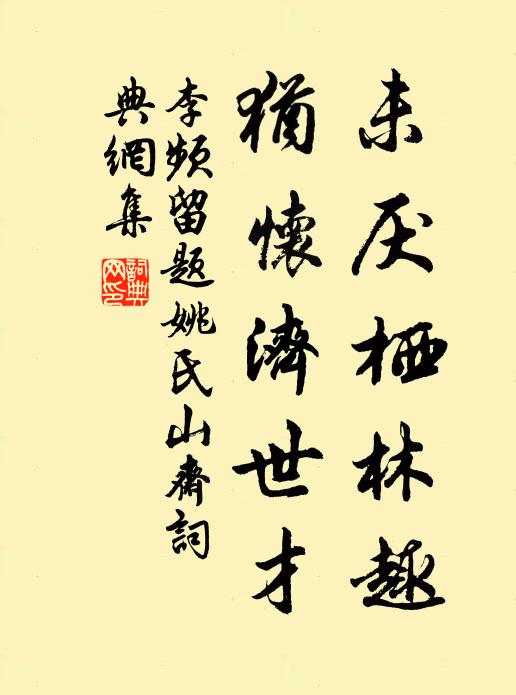 未厌栖林趣
犹怀济世才
李频留题姚氏山斋词
典网集
词典
网印